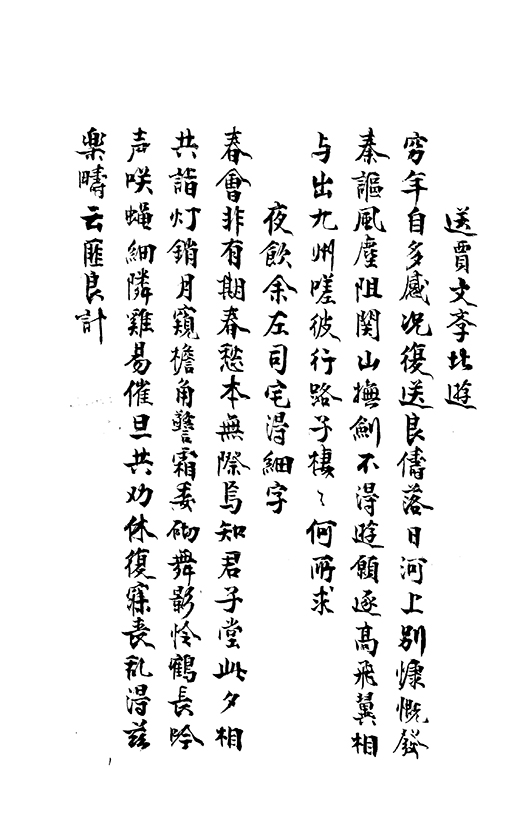 送賈文亭北遊
穷年自多感况復送良儔落日河上别慷慨發
秦謳風塵阻関山撫劍不得遊願逐高飛翼相
与出九州嗟彼行路子棲〻何所求
夜飲余左司宅得細字
春會非有期春愁本無際焉知君子堂此夕相
共詣灯銷月窺檐角鷩霜委砌舞影怜鶴長吟
声咲蝇細隣雞易催旦共劝休復寐丧乱得兹
楽疇云匪良計